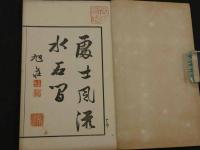 處士風流
水石間
旭莊